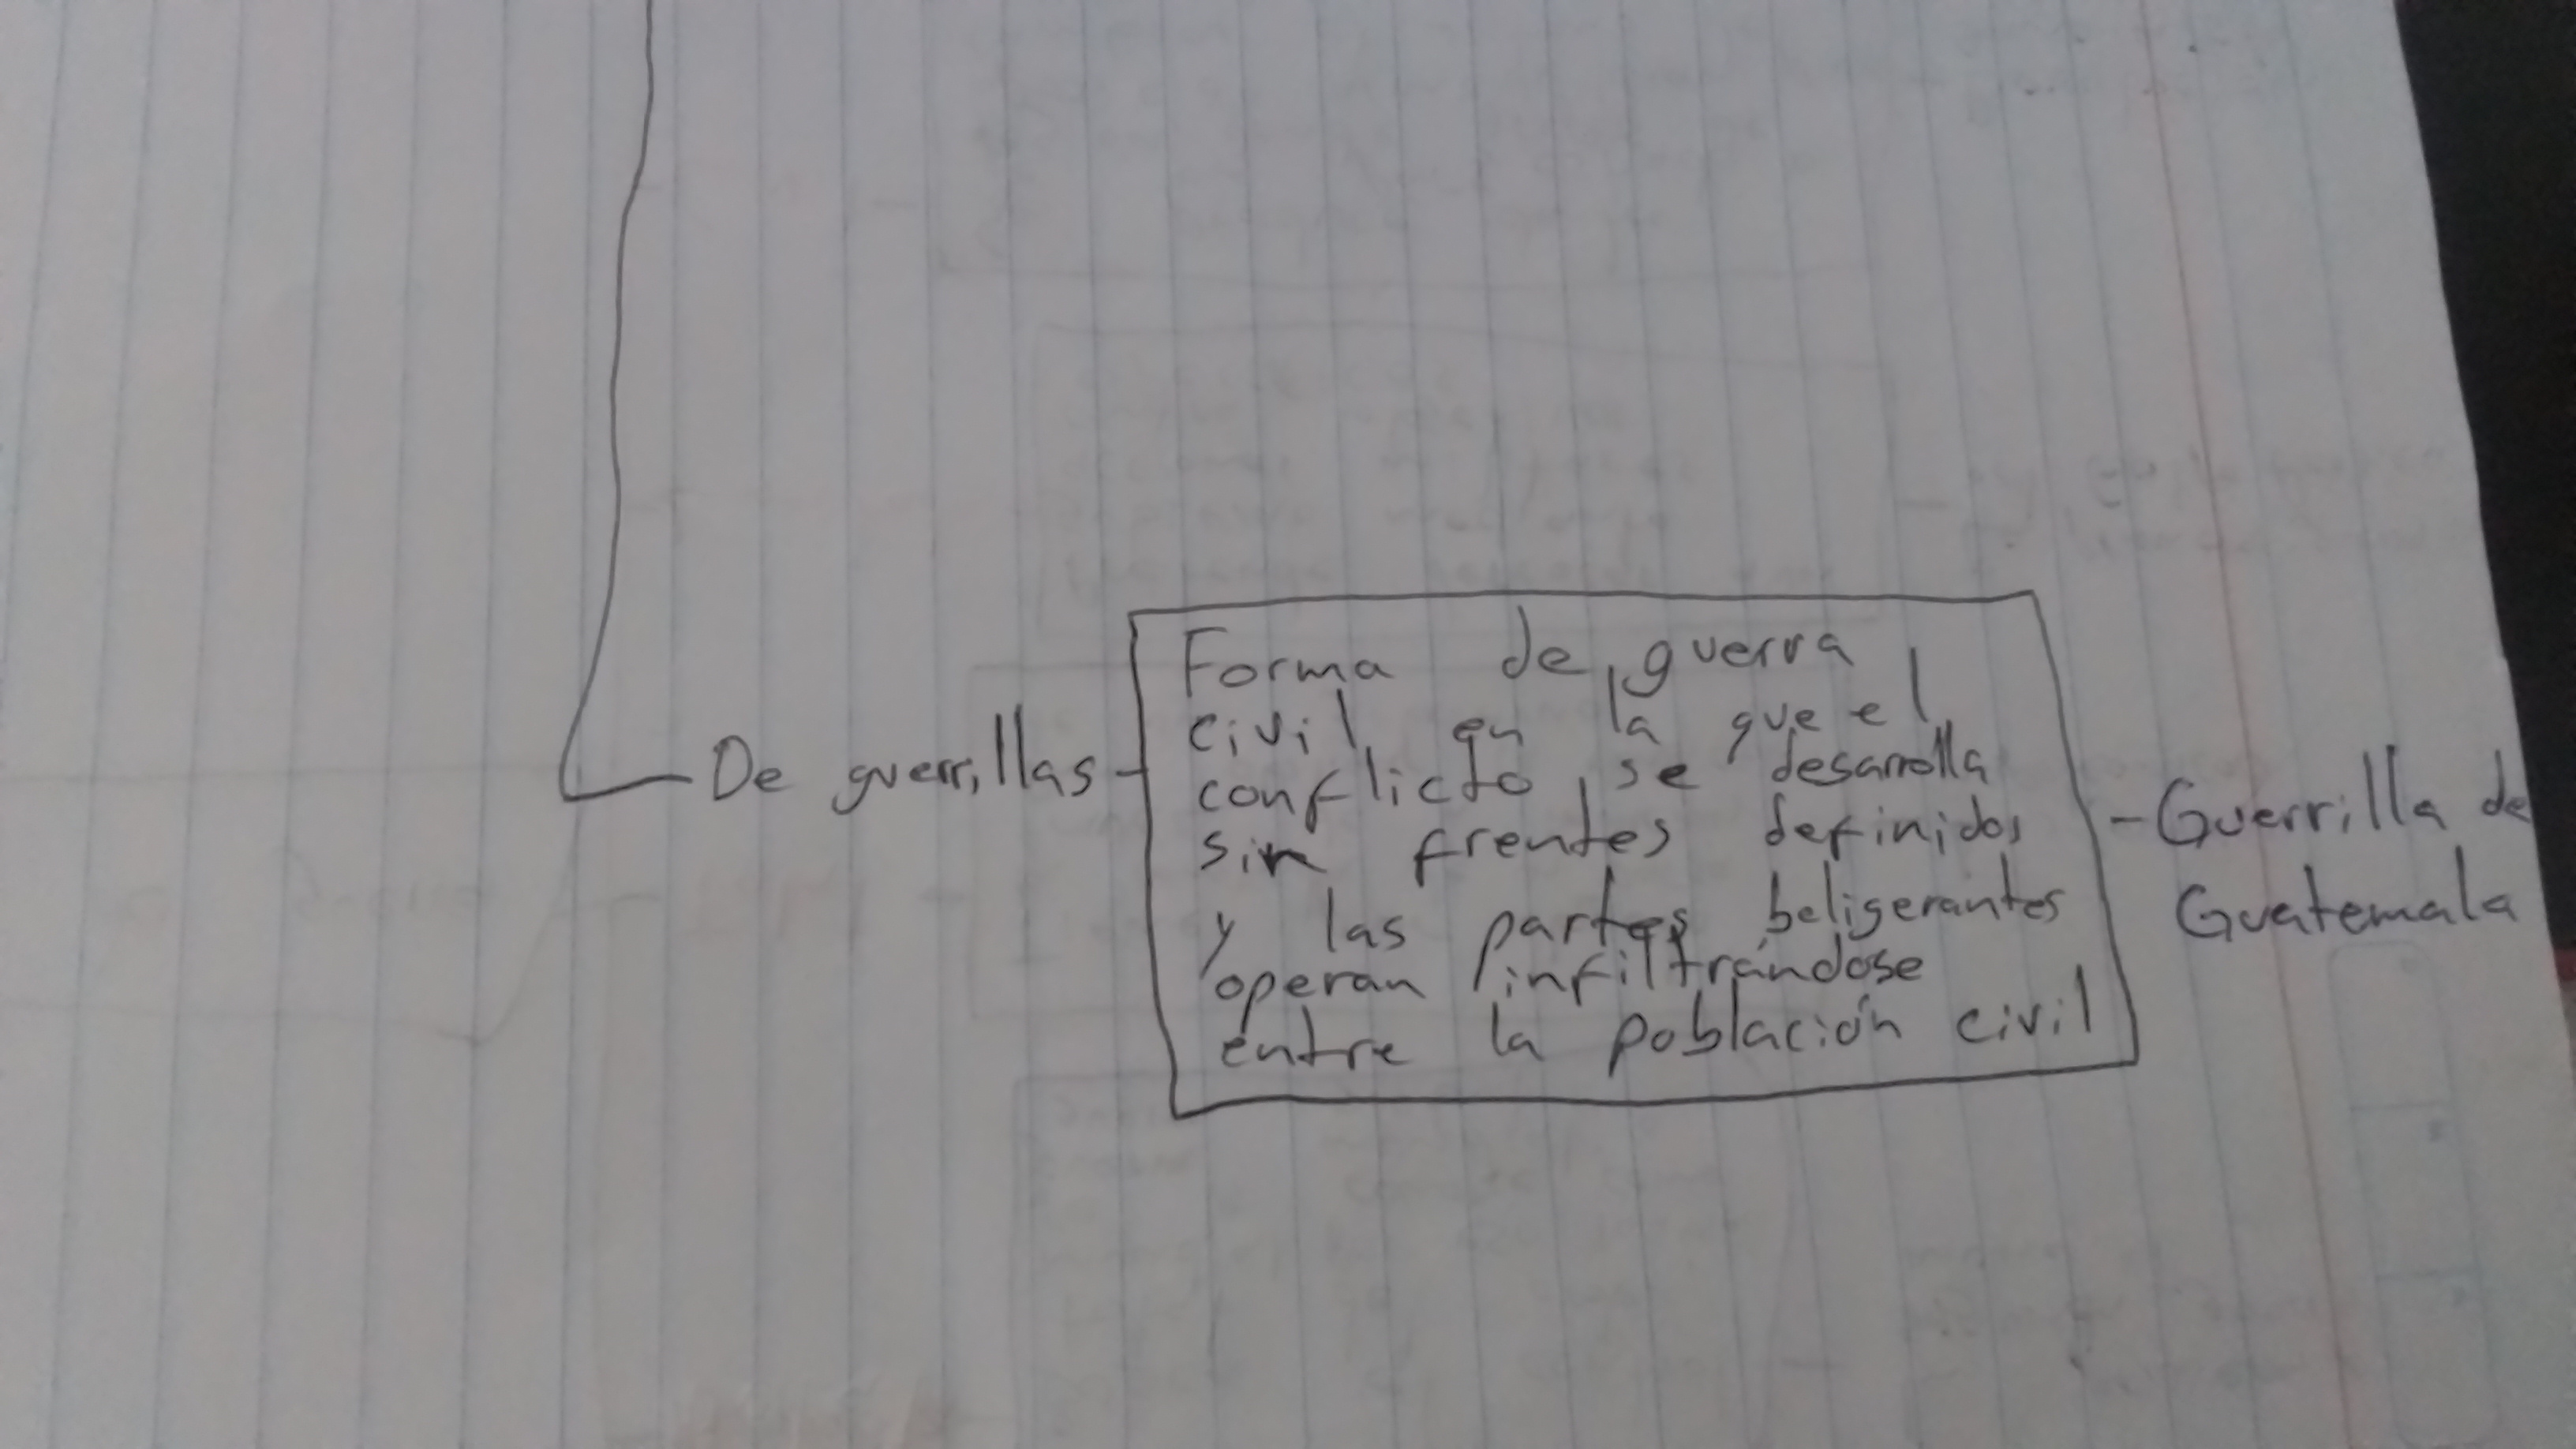 De guerrillas
Forma de guerra
civil en la que el
conflicto se desarrolla
sin frentes definidos
y las partes beligerantes
operan infiltrándose
entre la población civil
- Guerrilla de
Guatemala